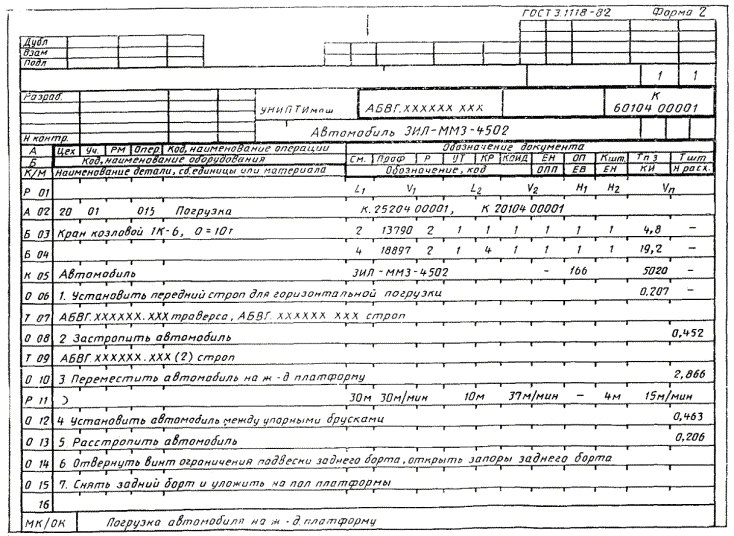 ГОСТ 3.1118-82 Форма 2
Дубл
Взам
Подл
1 1
Разраб. УНИПТИмаш АБВГ.XXXXXX XXX К 60104 00001
Н контр. Автомобиль ЗИЛ-ММЗ-4502
А Цех Уч. РМ Опер Код, наименование операции Обозначение документа
Б Код, наименование оборудования См. Проф Р УТ КР КОИД ЕН ОП Кшт. Тпз Тшт
К/М Наименование детали, сб. единицы или материала Обозначение, код ОПП ЕВ ЕН КИ Н расх.
Р 01 L1 V1 L2 V2 H1 H2 Vп
А 02 20 01 015 Погрузка К.25204 00001, К 20104 00001
Б 03 Кран козловой 1К-6, Q=10т 2 13790 2 1 1 1 1 1 1 4,8 –
Б 04 4 18897 2 1 4 1 1 1 1 19,2 –
К 05 Автомобиль ЗИЛ-ММЗ-4502 – 166 5020 –
О 06 1. Установить передний строп для горизонтальной погрузки 0,207 –
Т 07 АБВГ.XXXXXX.XXX траверса, АБВГ.XXXXXX XXX строп
О 08 2 Застропить автомобиль 0,452
Т 09 АБВГ.XXXXXX.XXX (2) строп
О 10 3 Переместить автомобиль на ж-д платформу 2,866
Р 11 30м 30м/мин 10м 37м/мин – 4м 15м/мин
О 12 4 Установить автомобиль между упорными брусками 0,463
О 13 5 Расстропить автомобиль 0,206
О 14 6 Отвернуть винт ограничения подвески заднего борта, открыть запоры заднего борта
О 15 7. Снять задний борт и уложить на пол платформы
16
МК/ОК Погрузка автомобиля на ж-д платформу